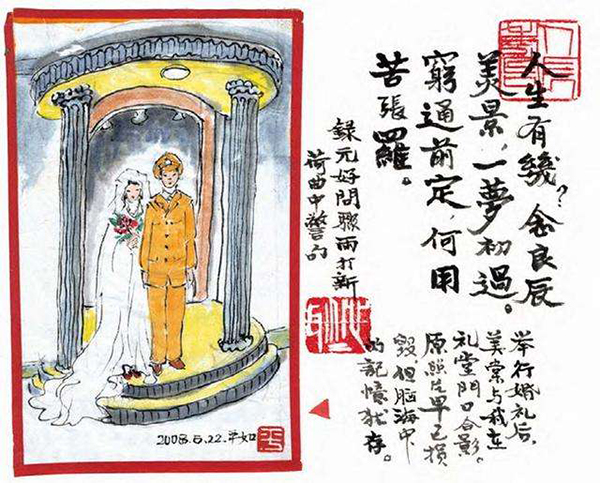 人生有幾？念良辰
美景，一夢初過。
窮通前定，何用
苦張羅。
錄元好問驟雨打新
荷曲中警句
举行婚礼后，
美棠与我在
礼堂門口合影。
原照片早已損
毁但脑海中
的記憶犹存。
2008.5.22.平如